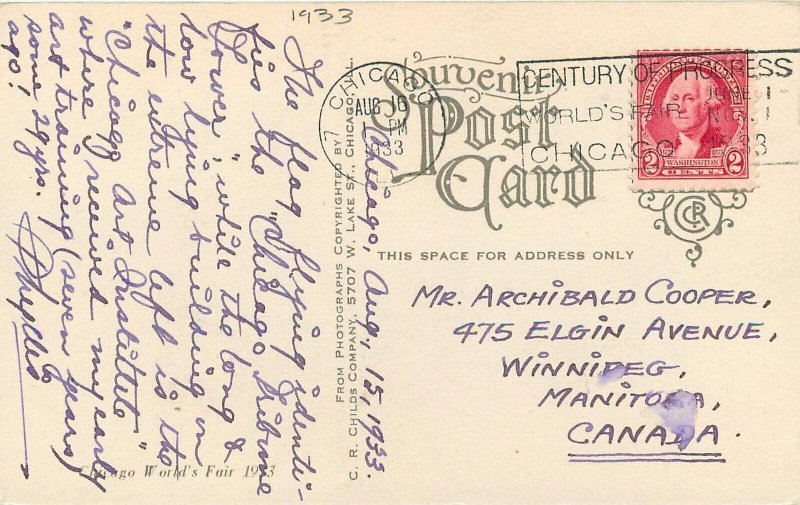 1933
Souvenir
Post
Card
CHICAGO
AUG 16
PM
1933
7
CENTURY OF PROGRESS
WORLD'S FAIR
CHICAGO
JUNE 1
NOV. 1
1933
2 WASHINGTON 2
CENTS
CRC
THIS SPACE FOR ADDRESS ONLY
Mr. Archibald Cooper,
475 Elgin Avenue,
Winnipeg,
Manitoba,
Canada.
FROM PHOTOGRAPHS COPYRIGHTED BY
C. R. CHILDS COMPANY, 5707 W. LAKE ST., CHICAGO, ILL.
Chicago, Aug. 15, 1933.
The flag flying identi-
fies the "Chicago Tribune
Tower", while the long &
low lying building on
the extreme left is the
"Chicago Art Institute"
where I received my early
art training (seven years)
some 29 yrs. ago!
Chicago World's Fair 1933